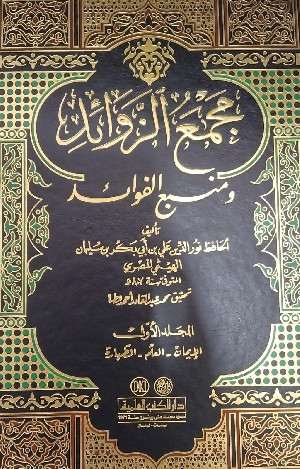 مجمع الزوائد
ومنبع الفوائد
تأليف
الحافظ نور الدين علي بن أبي بكر بن سليمان
الهيثمي المصري
المتوفى سنة ٨٠٧ هـ
تحقيق محمد عبد القادر أحمد عطا
المجلد الأول
الإيمان - العلم - الطهارة
دار الكتب العلمية
بيروت - لبنان